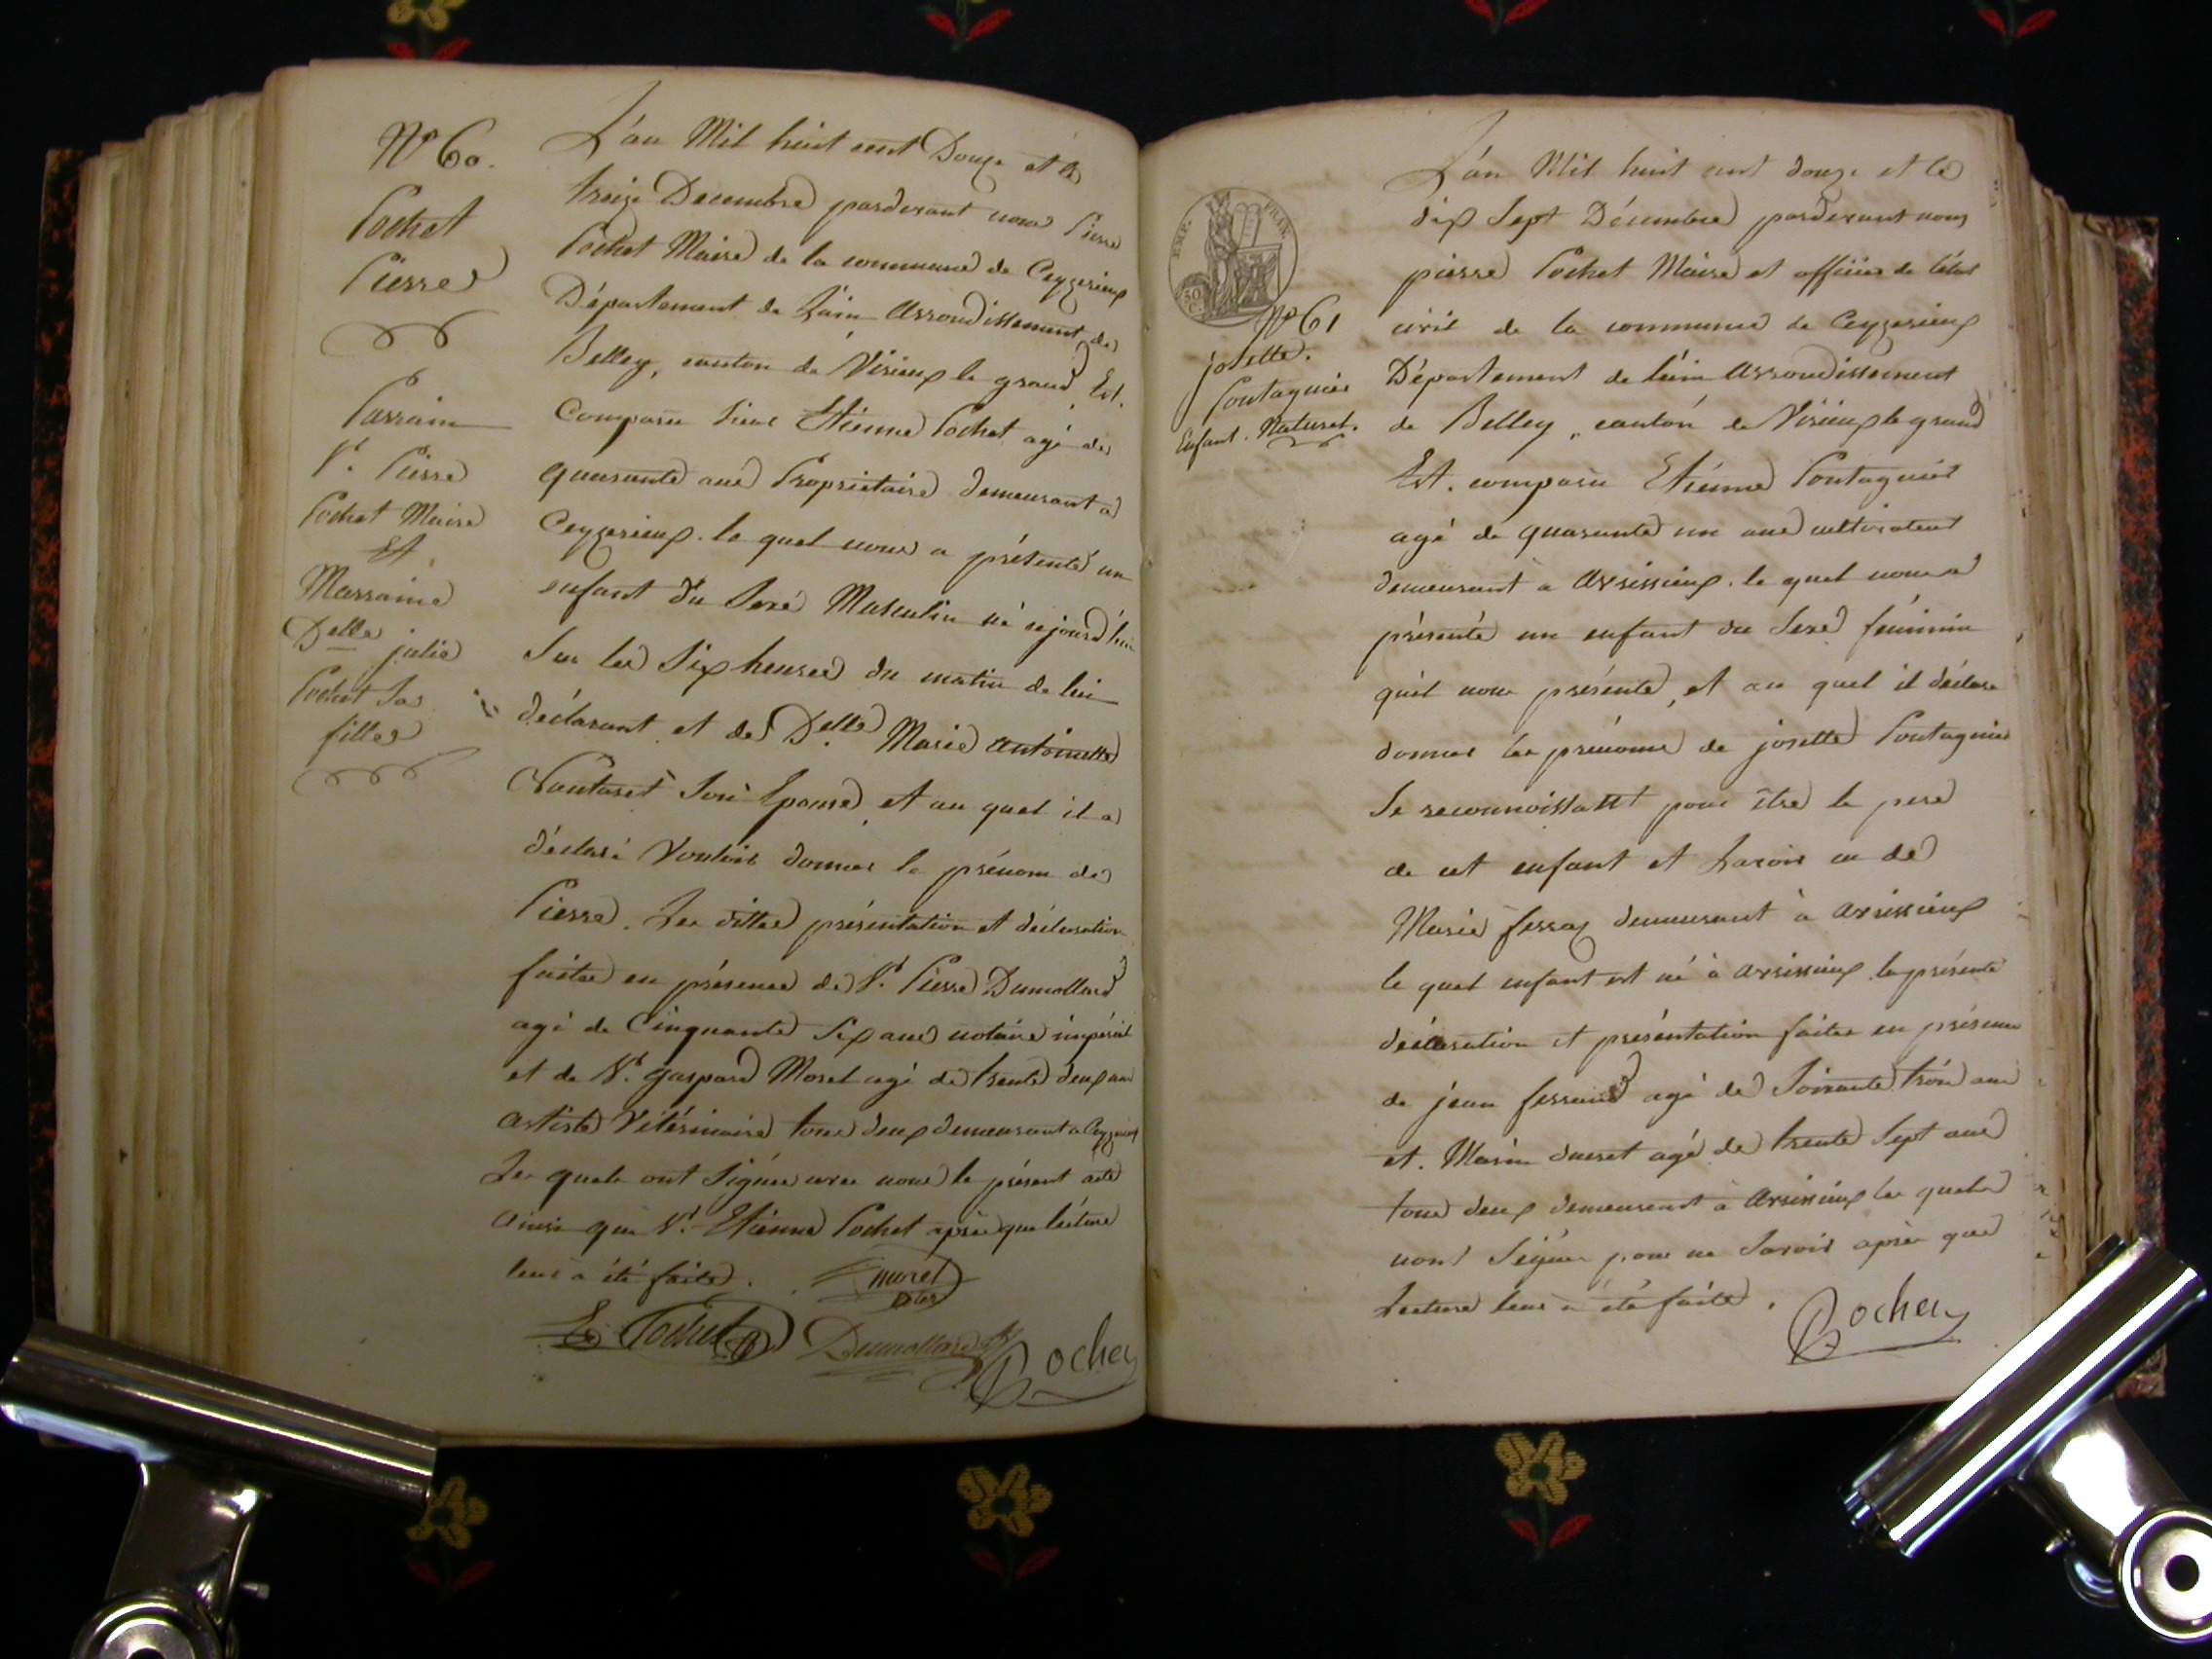 N° 60.
Pochet
Pierre
Parrain
Sr. Pierre
Pochet Maire
Et
Marraine
Delle julie
Pochet Sa
fille
L'an Mil huit cent Douze et le
treize Decembre pardevant nous Pierre
Pochet Maire de la commune de Ceyzerieux
Département de L'ain Arrondissement de
Belley, canton de Virieux le grand, Est.
Comparu Sieur Etienne Pochet agé de
quarante ans Propriétaire demeurant a
Ceyzerieux. le quel nous a présenté un
enfant du Sexe Masculin né cejourd'hui
Sur les Six heures du matin de lui
déclarant et de Delle Marie antoinette
Son Epouse, et au quel il a
déclaré Vouloir donner le prénom de
Pierre. Les dittes présentation et déclaration
faites en présence de Sr. Pierre Dumollard
agé de Cinquante Six ans notaire impérial
et de Sr. gaspard Morel agé de trente deux ans
artiste Vétérinaire tous deux demeurant a Ceyzerieux
Les quels ont Signés avec nous le présent acte
ainsi que Sr. Etienne Pochet après que lecture
leur a été faite.
morel
E. Pochet Dumollard Pochet
EMP. FRAN.
50 C.
N° 61
josette.
Pontagnier
Enfant. Naturel.
L'an Mil huit cent douze et le
dix Sept Décembre pardevant nous
pierre Pochet Maire et officier de l'état
civil de la commune de Ceyzerieux
Département de l'ain Arrondissement
de Belley, canton de Virieux le grand
Est. comparu Etienne Pontagnier
agé de quarante un ans cultivateur
demeurant a Avrissieux. le quel nous a
présenté un enfant du Sexe féminin
quil nous présente, et au quel il déclare
donner les prénoms de josette Pontagnier
Se reconnoissant pour être le pere
de cet enfant et Lavoir eu de
Marie demeurant à avrissieux
le quel enfant est né à avrissieux la présente
déclaration et présentation faites en présence
de jean agé de Soixante trois ans
et. Marin agé de trente Sept ans
tous deux demeurant à avrissieux les quels
nont Signer pour ne Savoir après que
Lecture leur a été faite.
Pochet